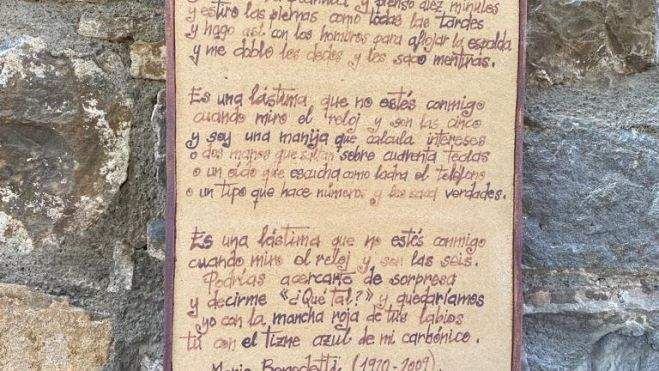 y pienso diez minutos
y estiro las piernas como todas las tardes
y hago así con los hombros para aflojar la espalda
y me doblo los dedos y les saco mentiras.
Es una lástima que no estés conmigo
cuando miro el reloj y son las cinco
y soy una manija que calcula intereses
o dos manos que saltan sobre cuarenta teclas
o un oído que escucha como ladra el teléfono
o un tipo que hace números y les saca verdades.
Es una lástima que no estés conmigo
cuando miro el reloj y son las seis.
Podrías acercarte de sorpresa
y decirme «¿Qué tal?» y quedaríamos
yo con la mancha roja de tus labios
tú con el tizne azul de mi carbónico.
Mario Benedetti (1920-2009)